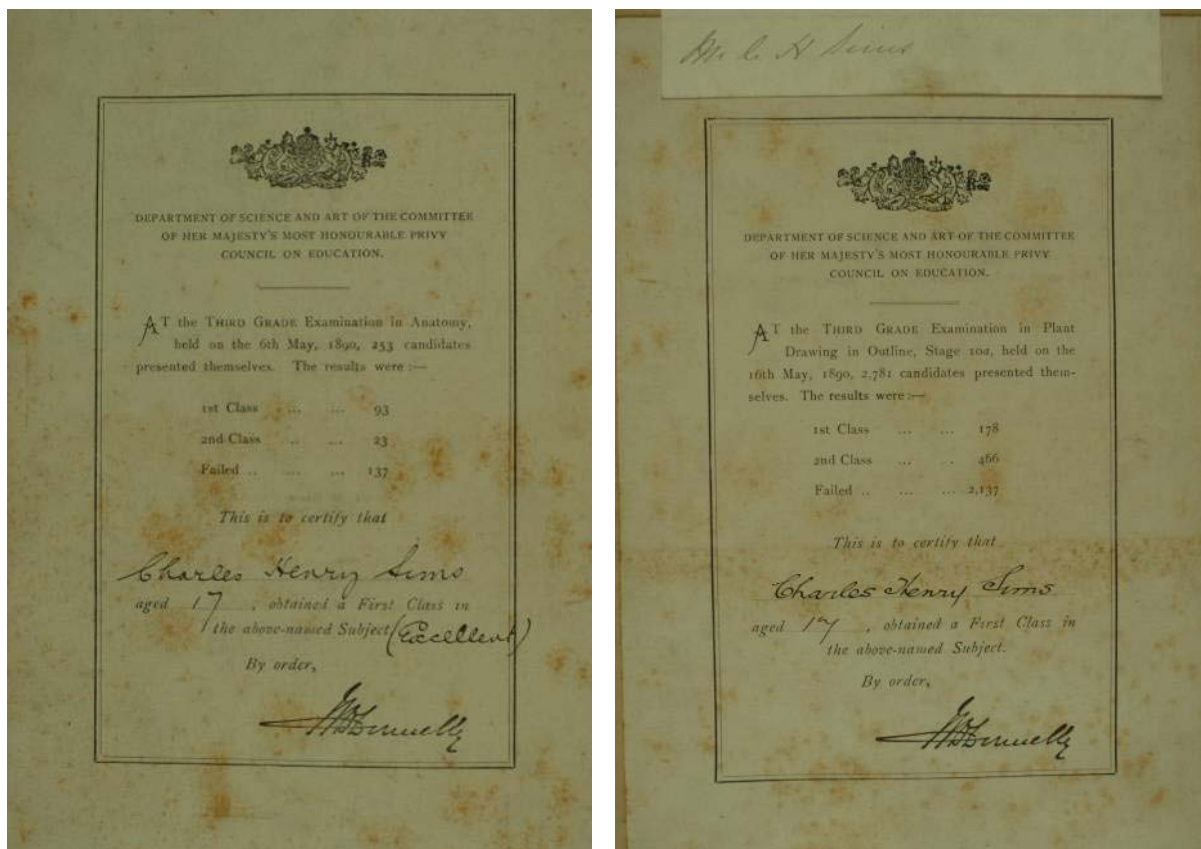 DEPARTMENT OF SCIENCE AND ART OF THE COMMITTEE
OF HER MAJESTY'S MOST HONOURABLE PRIVY
COUNCIL ON EDUCATION.
AT the THIRD GRADE Examination in Anatomy,
held on the 6th May, 1890, 253 candidates
presented themselves. The results were :—
1st Class ... ... 93
2nd Class .. ... 23
Failed .. ... ... 137
This is to certify that
Charles Henry Sims
aged 17, obtained a First Class in
the above-named Subject (Excellent)
By order,
Mr C H Sims
DEPARTMENT OF SCIENCE AND ART OF THE COMMITTEE
OF HER MAJESTY'S MOST HONOURABLE PRIVY
COUNCIL ON EDUCATION.
AT the THIRD GRADE Examination in Plant
Drawing in Outline, Stage 10a, held on the
16th May, 1890, 2,781 candidates presented them-
selves. The results were :—
1st Class ... ... 178
2nd Class ... . 466
Failed .. ... ... 2,137
This is to certify that
Charles Henry Sims
aged 17, obtained a First Class in
the above-named Subject.
By order,